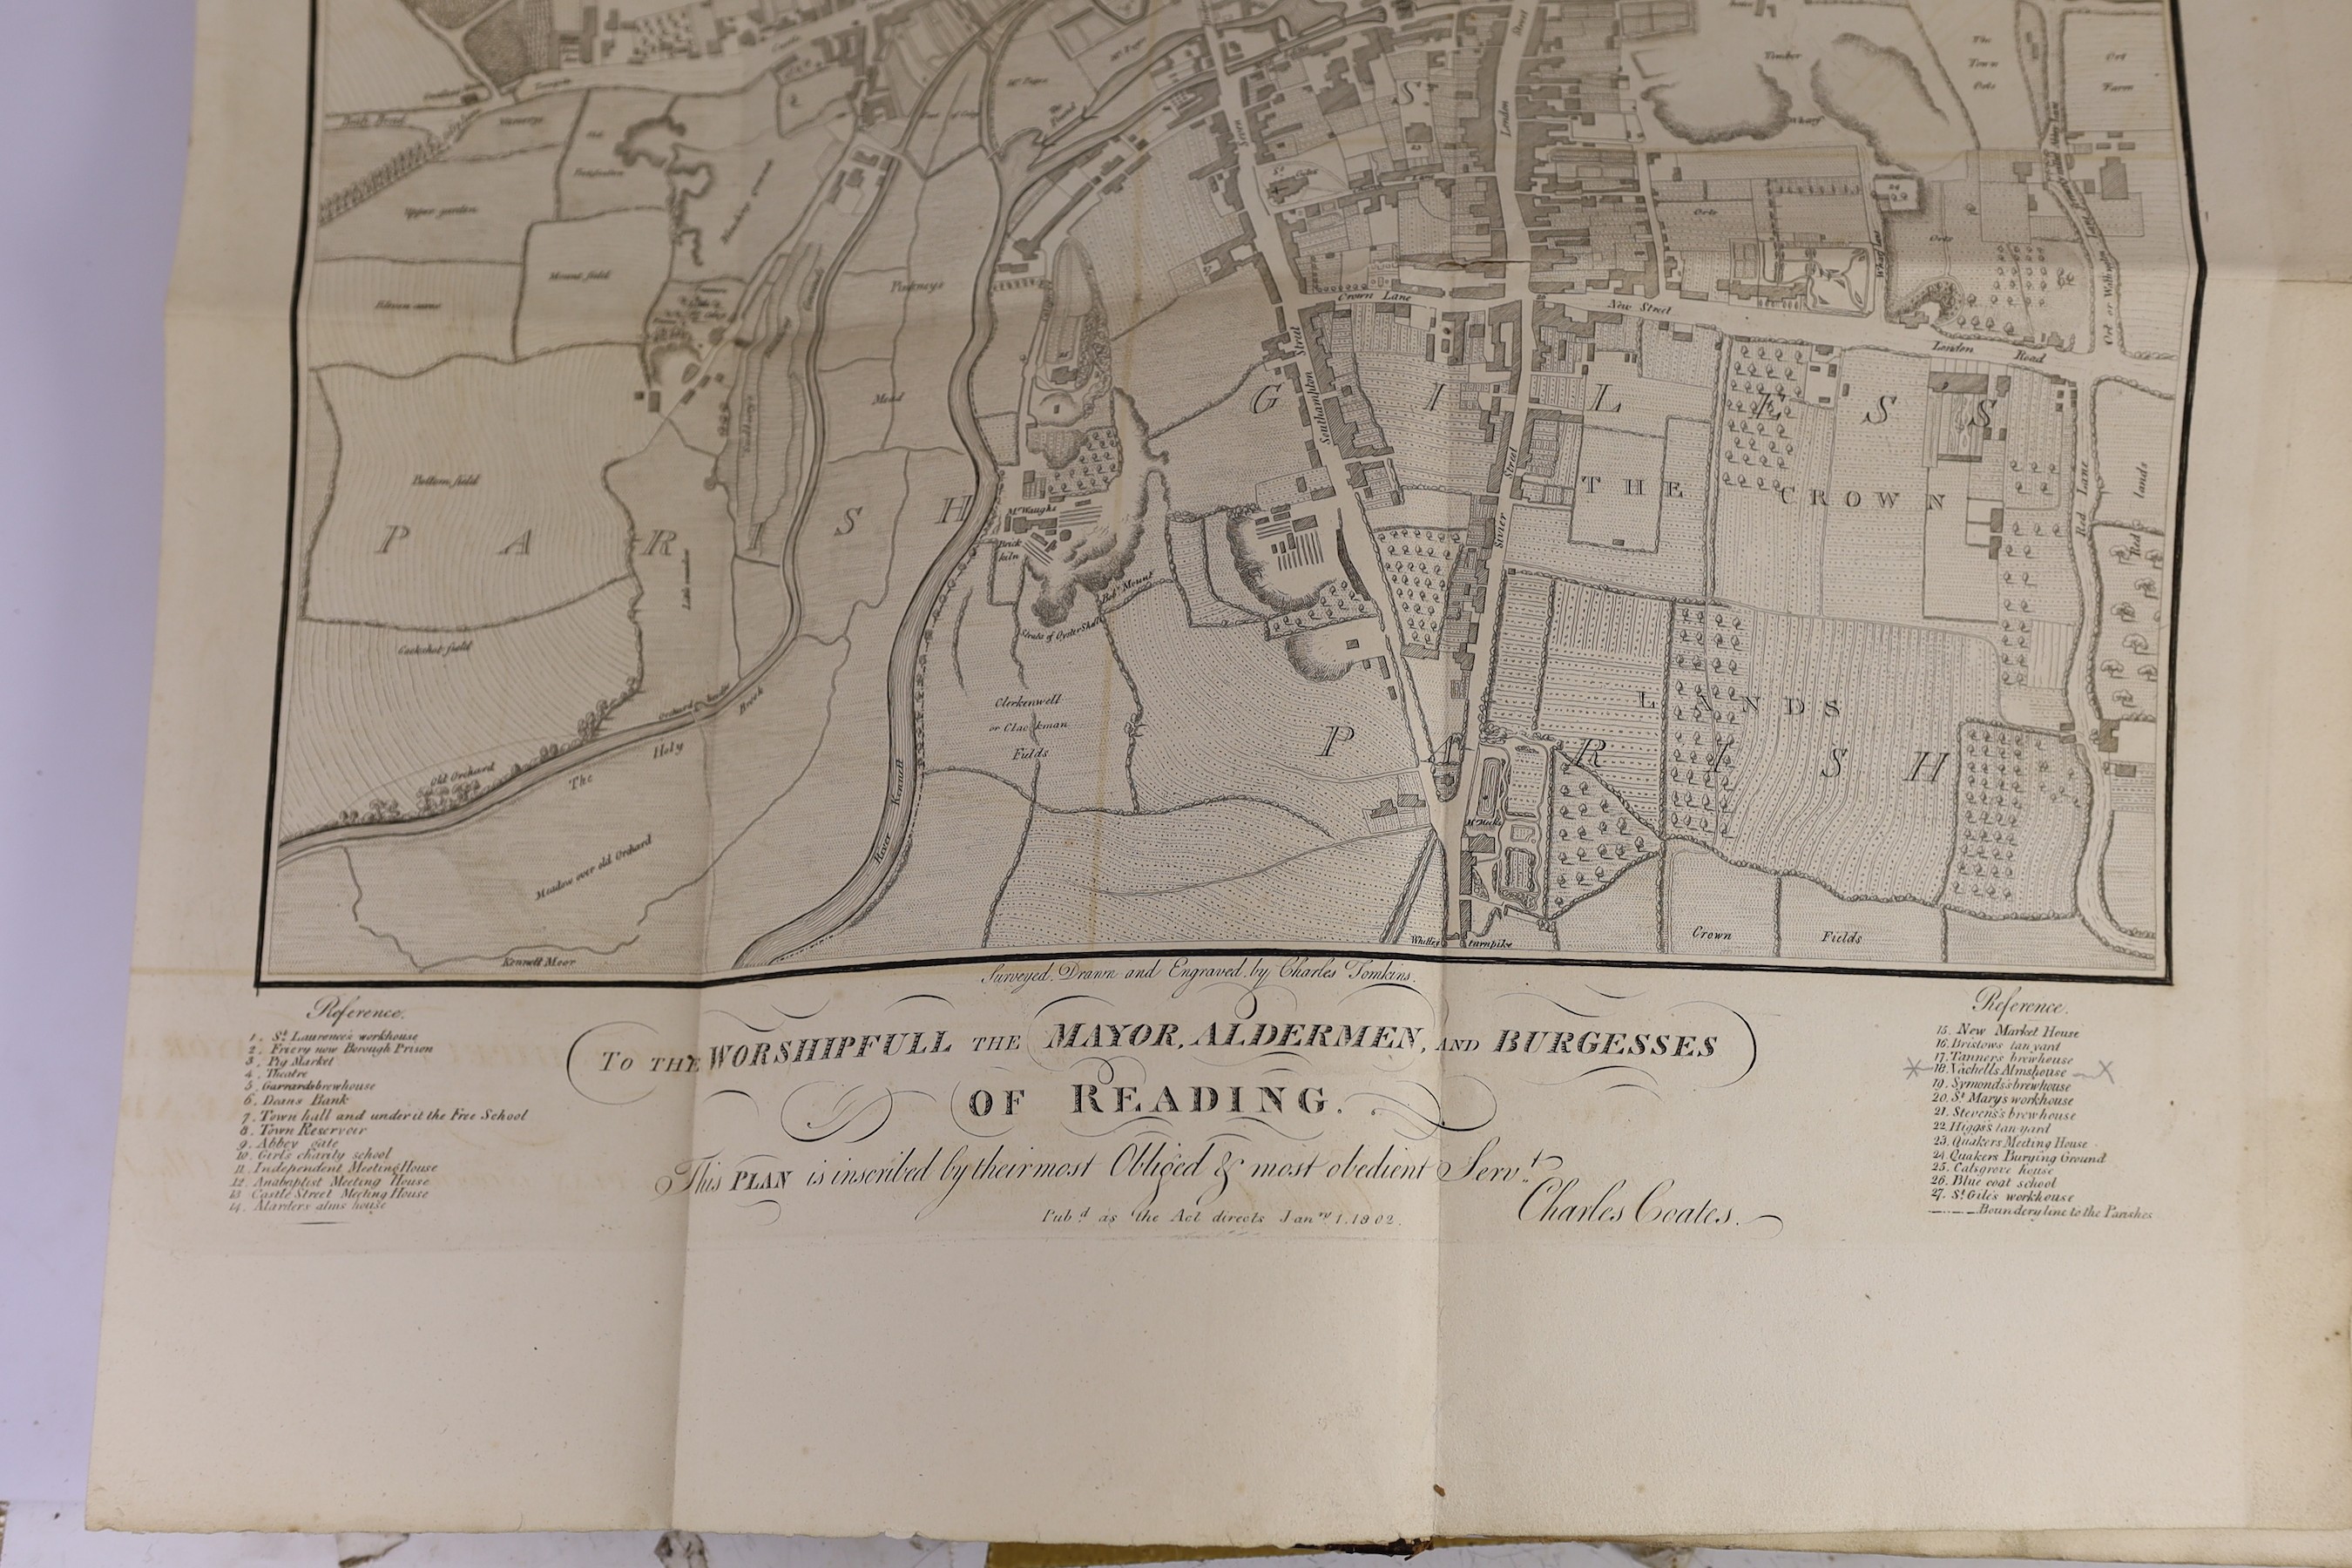 The Town Orts
Ort Farm
Timber
Wharf
Mill Pond
S.
London Street
Seven
St. Giles
Orts
Orts
Wharf Lane
Upper garden
Mount field
Pinkneys
Mead
Crown Lane
New Street
London Road
Southamhton Street
Bottom field
Cockshot field
PARISH
GILESS
THE CROWN
LANDS
PARISH
Silver Street
Red Lane
Red lands
Mr. Waughs
Brick kiln
Bob's Mount
Strata of Oyster Shells
Clerkenwell
or Clackman
Fields
Old Orchard
Orchard
The Holy Brook
Meadow over old Orchard
River Kennett
Kennett Moor
Whitley turnpike
Crown Fields
Surveyed, Drawn and Engraved, by Charles Tomkins.
To the WORSHIPFULL the MAYOR, ALDERMEN, and BURGESSES
OF READING.
This PLAN is inscribed by their most Obliged & most obedient Servt.
Charles Coates.
Pubd. as the Act directs Janry. 1. 1802.
Reference.
1. St. Laurence's workhouse
2. Friery now Borough Prison
3. Pig Market
4. Theatre
5. Garrards brewhouse
6. Deans Bank
7. Town hall and under it the Free School
8. Town Reservoir
9. Abbey gate
10. Girls charity school
11. Independent Meeting House
12. Anabaptist Meeting House
13. Castle Street Meeting House
14. Harders alms house
Reference.
15. New Market House
16. Bristows tan yard
17. Tanner's brewhouse
18. Vachells Almshouse
19. Symonds's brewhouse
20. St. Mary's workhouse
21. Stevens's brewhouse
22. Higgs's tan yard
23. Quakers Meeting House
24. Quakers Burying Ground
25. Calsgrove house
26. Blue coat school
27. St. Giles workhouse
Boundery line to the Parishes